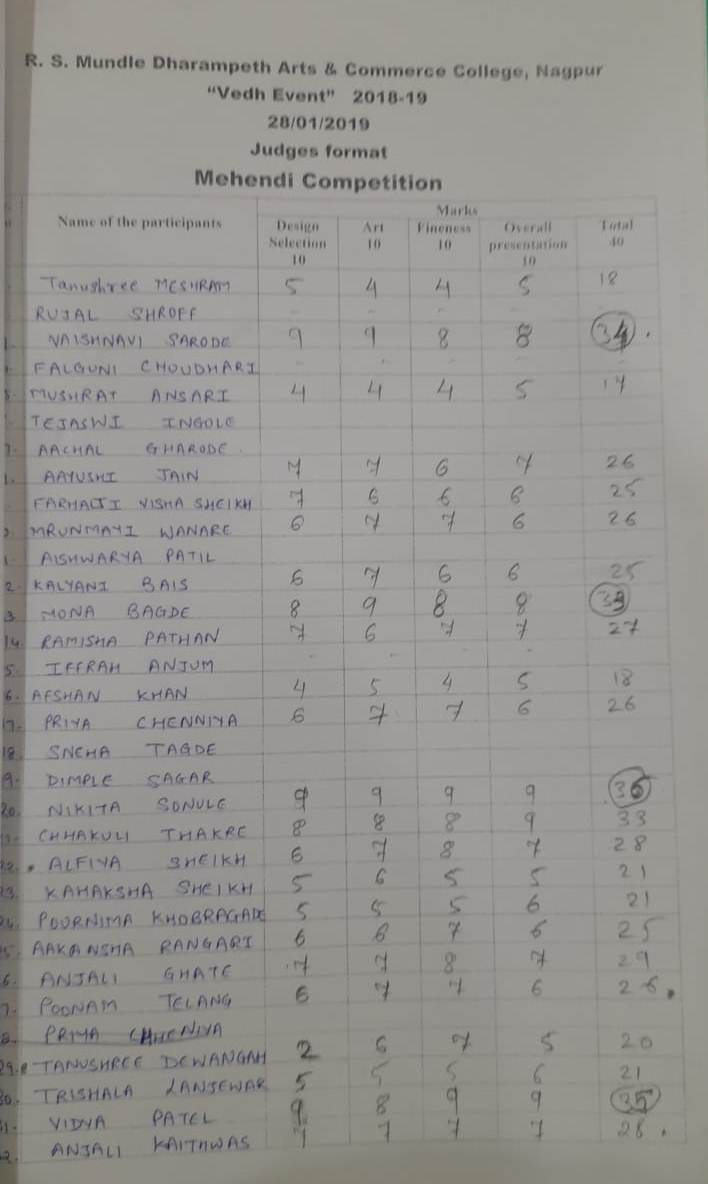 R. S. Mundle Dharampeth Arts & Commerce College, Nagpur
"Vedh Event" 2018-19
28/01/2019
Judges format
Mehendi Competition
Name of the participants Marks
Design Selection 10 Art 10 Fineness 10 Overall presentation 10 Total 40
Tanushree MESHRAM 5 4 4 5 18
RUJAL SHROFF - - - -
VAISHNAVI SARODE 9 9 8 8 34.
FALGUNI CHOUDHARI - - - -
MUSHRAT ANSARI 4 4 4 5 17
TEJASWI INGOLE
AACHAL GHARODE.
AAYUSHI JAIN 7 7 6 7 26
FARHAJJI VISHA SHEIKH 7 6 6 6 25
MRUNMAYI WANARE 6 7 7 6 26
AISHWARYA PATIL
2. KALYANI BAIS 6 7 6 6 25
3. MONA BAGDE 8 9 8 8 33
14. RAMISHA PATHAN 7 6 7 7 27
5. IFFRAH ANJUM - - - -
6. AFSHAN KHAN 4 5 4 5 18
17. PRIYA CHENNIYA 6 7 7 6 26
18. SNEHA TAGDE
9. DIMPLE SAGAR
20. NIKITA SONULE 9 9 9 9 36
CHHAKULI THAKRE 8 8 8 9 33
22. ALFIYA SHEIKH 6 7 8 7 28
23. KAHAKSHA SHEIKH 5 6 5 5 21
24. POORNIMA KHOBRAGADE 5 5 5 6 21
5. AAKANSHA RANGARI 6 6 7 6 25
6. ANJALI GHATE 7 7 8 7 29
7. POONAM TELANG 6 7 7 6 26.
8. PRIYA CHHENIYA
29. TANUSHREE DEWANGAN 2 6 7 5 20
30. TRISHALA LANJEWAR 5 5 5 6 21
VIDYA PATEL 9 8 9 9 35
2. ANJALI KAITHWAS 7 7 7 7 28.